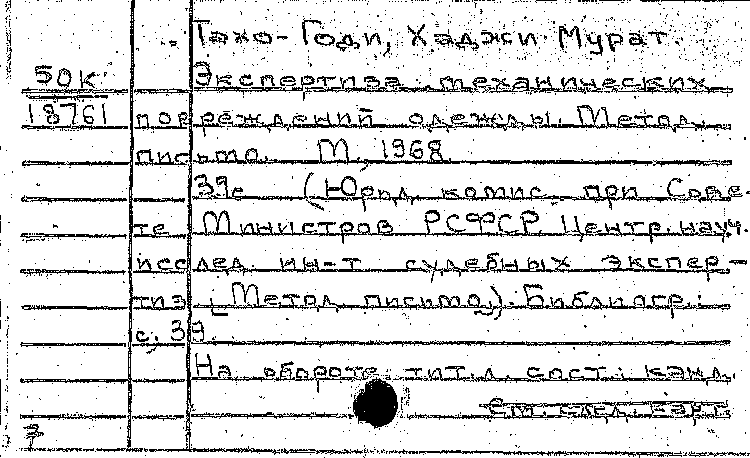 Тахо-Годи, Хаджи Мурат.
50к Экспертиза механических
18761 повреждений одежды. Метод.
письмо. М., 1968.
39с (Юрид. комис. при Сове-
те Министров РСФСР. Центр. науч.
исслед. ин-т судебных экспер-
тиз. Метод. письмо). Библиогр.:
с. 39.
На обороте тит. л. сост.: канд.
См. след. карт.